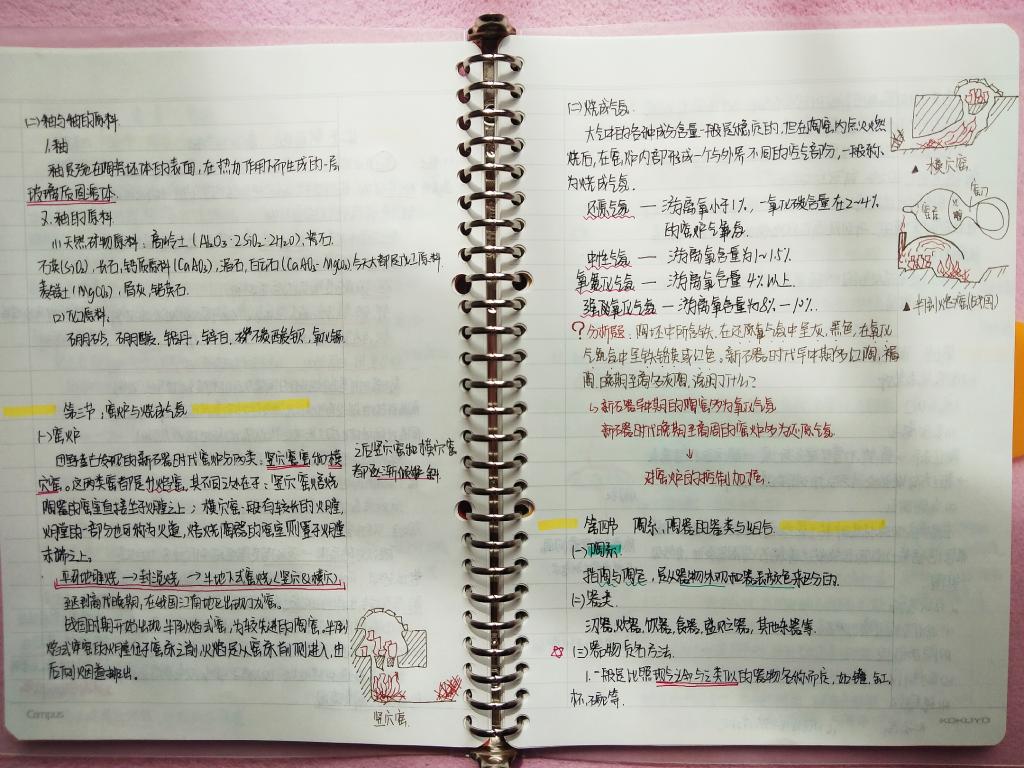 (二)釉与釉的原料
1.釉
釉是指在陶瓷坯体的表面,在热力作用下所生成的一层
玻璃质固溶体.
2.釉的原料
(1)天然矿物原料:高岭土(Al₂O₃·2SiO₂·2H₂O),瓷石.
石英(SiO₂),长石,钙质原料(CaAO₃),滑石,白云石(CaAO₃·MgCO₃)
今天大部民化工原料.
菱镁土(MgCO₃),骨灰,锆英石.
(2)化工原料.
硼砂,硼酸,铅丹,锌白,碳酸钡,氧化锡
第三节:窑炉与烧成气氛
(一)窑炉
田野考古发现的新石器时代窑炉分两类:竖穴窑和横
穴窑。这两类窑都属升焰窑,其不同之处在于:竖穴窑焙烧
陶器的窑室直接坐于火膛之上;横穴窑一般有较长的火膛,
火膛的一部分也可称为火道,焙烧陶器的窑室则置于火膛
末端之上。
之后竖穴窑和横穴窑
都逐渐倾斜
平地堆烧→封泥烧→半地下式窑烧(竖穴&横穴)
到商代晚期,在我国江南地区出现了龙窑。
战国时期开始出现半倒焰式窑,为较先进的陶窑,半倒
焰式窑的火膛位于窑床之前,火焰是从窑床前侧进入,由
后向烟囱排出.
竖穴窑
Campus
(二)烧成气氛.
大气中的各种成分含量一般是恒定的,但在陶窑内点火燃
烧后,在窑炉内部形成一个与外界不同的空气部分,一般称
为烧成气氛.
还原气氛 — 游离氧小于1%,一氧化碳含量在2~4%
的窑炉气氛.
中性气氛 — 游离氧含量为1~1.5%
氧氧化气氛 — 游离氧含量4%以上.
强氧化气氛 — 游离氧含量为8%~10%.
?分析题:陶坯中所含铁,在还原气氛中呈灰、黑色,在氧化
气氛中呈铁锈黄或红色.新石器时代早中期多红陶,褐
陶,晚期至商多灰陶,说明了什么?
↳新石器早中期的陶窑多为氧化气氛
新石器时代晚期至商周的窑炉多为还原气氛
↓
对窑炉的控制加强.
▲横穴窑.
窑门
窑室
火膛
▲半倒焰窑(战国)
第四节 陶系、陶器的器类与组合
(一)陶系.
指陶质与陶色,是从器物外观和器表颜色来区分的.
(二)器类.
汲器、炊器、饮器、食器、盛贮器,其他东器等.
(三)器物定名方法.
1.一般是比照现今认知与之类似的器物名称而定,如罐,缸,
杯,碗等.
KOKUYO